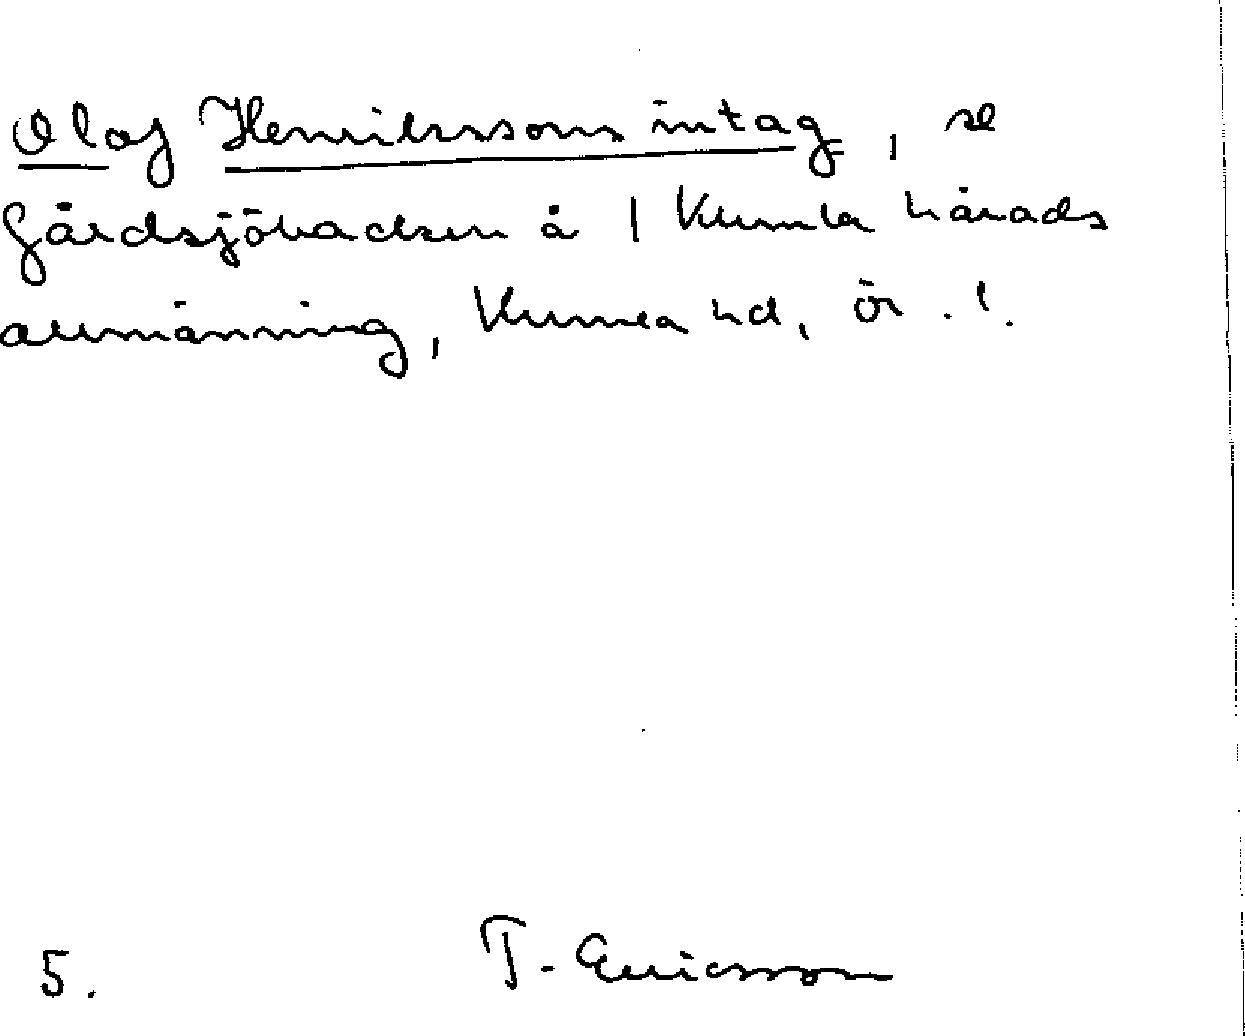 Olof Henrikssons intag, se
Gårdsjöbacken å 1 Kumla härads
allmänning, Kumla hd, ör. l.
5. T. Ericsson